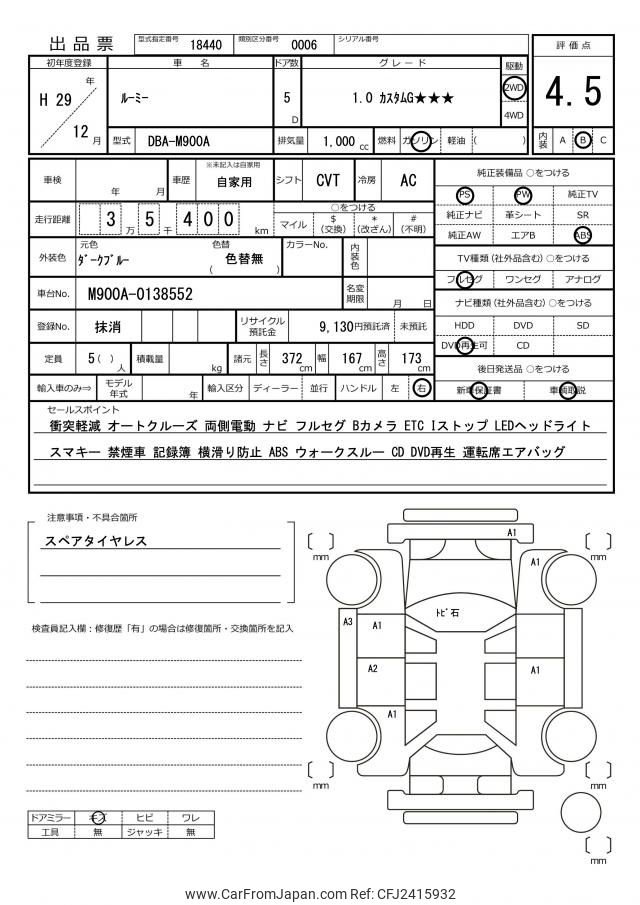 出品票
型式指定番号 18440 類別区分番号 0006 シリアル番号
評価点
4.5
内装 A B C
初年度登録 車名 ドア数 グレード 駆動
H 29 年 12 月
ルーミー
5 D
1.0 カスタムG★★★
2WD
4WD
型式 DBA-M900A 排気量 1,000 cc 燃料 ガソリン 軽油 ( )
車検 年 月 車歴 ※未記入は自家用 自家用 シフト CVT 冷房 AC
走行距離 3 5 4 0 0 万 千 km
○をつける
マイル $ (交換) * (改ざん) # (不明)
外装色 元色 ダークブルー 色替 ( 色替無 ) カラーNo. 内装色
車台No. M900A-0138552 名変期限 月 日
登録No. 抹消 リサイクル預託金 9,130円預託済 未預託
定員 5( )人 積載量 kg 諸元 長さ 372 cm 幅 167 cm 高さ 173 cm
輸入車のみ⇒ モデル年式 年 輸入区分 ディーラー 並行 ハンドル 左 右
純正装備品 ○をつける
PS PW 純正TV
純正ナビ 革シート SR
純正AW エアB ABS
TV種類(社外品含む) ○をつける
フルセグ ワンセグ アナログ
ナビ種類(社外品含む) ○をつける
HDD DVD SD
DVD再生可 CD
後日発送品 ○をつける
新車保証書 車輌取説
セールスポイント
衝突軽減 オートクルーズ 両側電動 ナビ フルセグ Bカメラ ETC Iストップ LEDヘッドライト
スマキー 禁煙車 記録簿 横滑り防止 ABS ウォークスルー CD DVD再生 運転席エアバッグ
注意事項・不具合箇所
スペアタイヤレス
検査員記入欄:修復歴「有」の場合は修復箇所・交換箇所を記入
ドアミラー キズ ヒビ ワレ
工具 無 ジャッキ 無
A1
A1
トビ石
A3
A1
A2
A1
A1
mm
mm
mm
mm
mm
www.CarFromJapan.com Ref: CFJ2415932